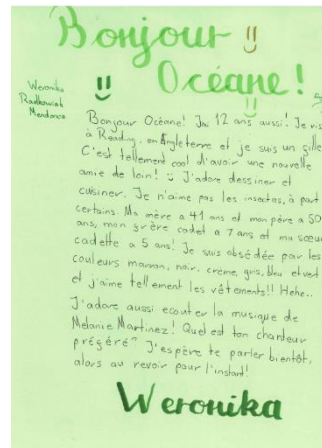 Bonjour !!
Océane!
Weronika
Radkowiak
Mendonca
Bonjour Océane! J'ai 12 ans aussi! Je vis
à Reading, en Angleterre et je suis un gille
C'est tellement cool d'avoir une nouvelle
amie de loin! J'adore dessiner et
cuisiner. Je n'aime pas les insectes, à part
certains. Ma mère a 41 ans et mon père a 50
ans, mon grère cadet a 7 ans et ma sœur
cadette a 5 ans! Je suis obsédée par les
couleurs marron, noir, crème, gris, bleu et vert
et j'aime tellement les vêtements!! Hehe..
J'adore aussi ecouter la musique de
Melanie Martinez! Quel est ton chanteur
prégéré? J'espère te parler bientôt,
alors au revoir pour l'instant!
Weronika